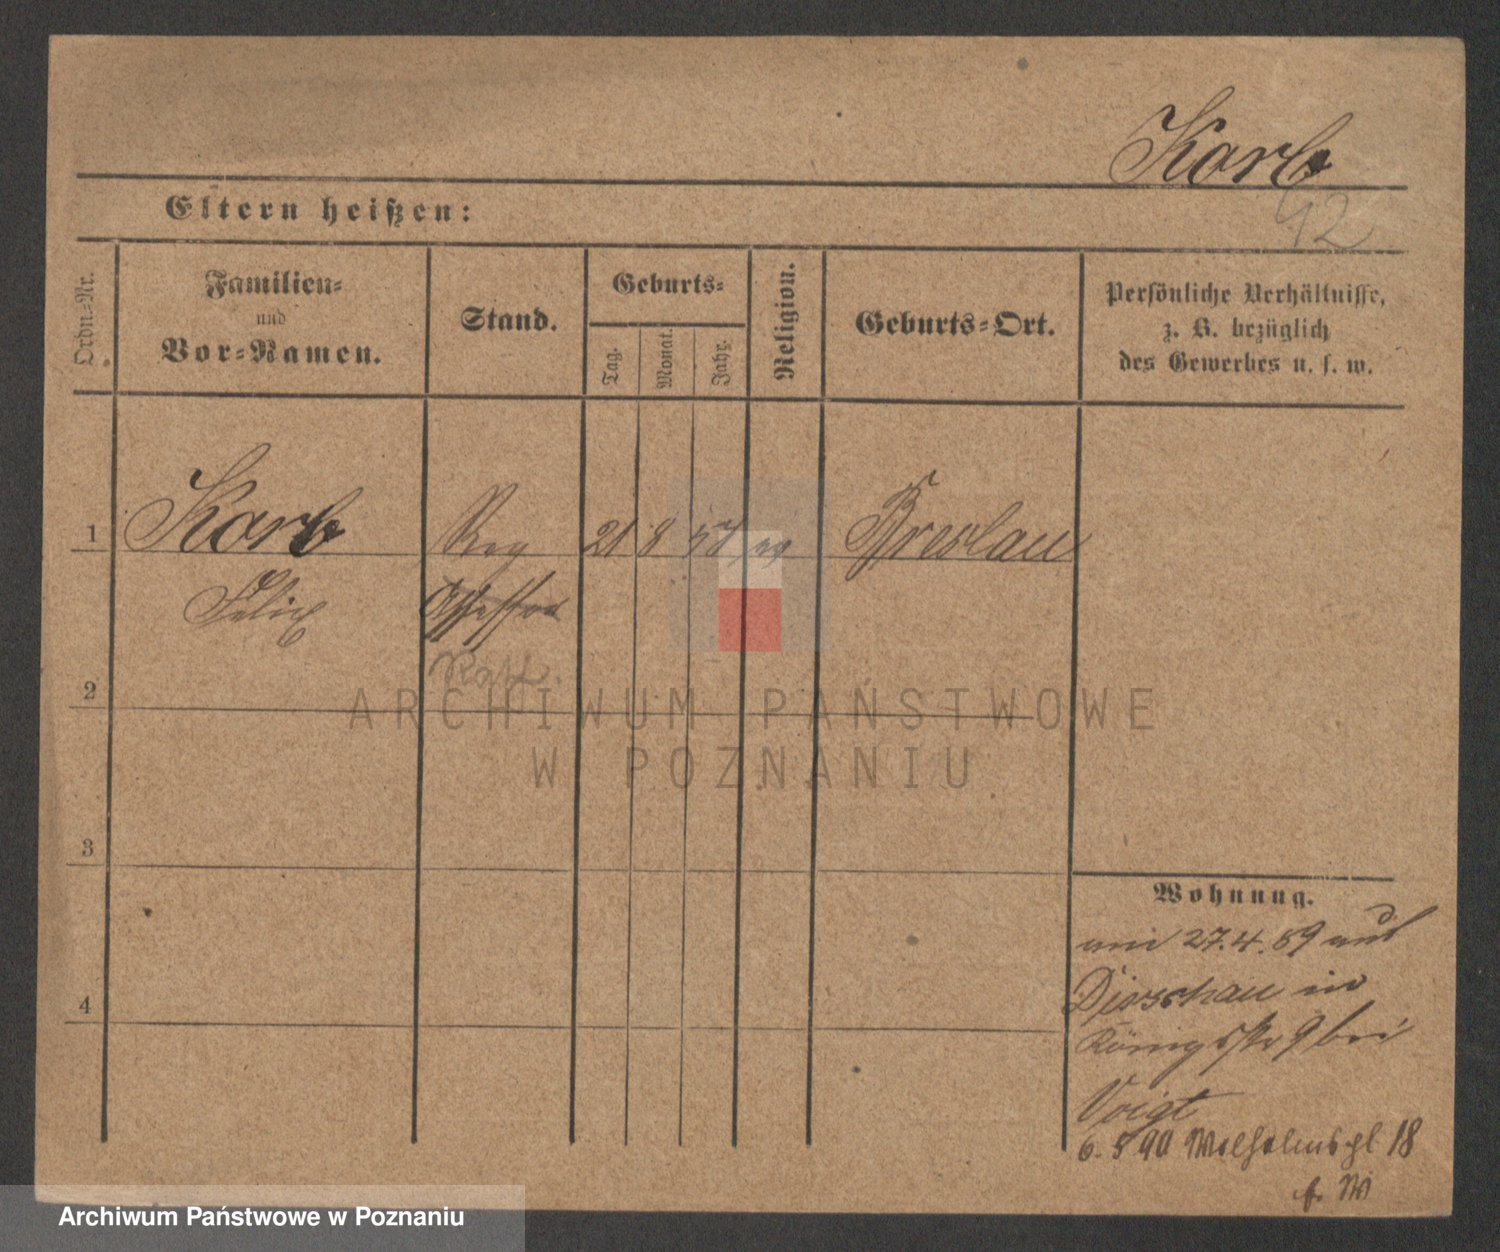 Karb
42
Eltern heißen:
Ordn.-Nr.
Familien-
und
Vor-Namen.
Stand.
Geburts-
Tag.
Monat.
Jahr.
Religion.
Geburts-Ort.
Persönliche Verhältnisse,
z. B. bezüglich
des Gewerbes u. s. w.
1
Karb
Reg
21
8
57
ev
Breslau
Felix
Assessor
Rath.
2
ARCHIWUM PAŃSTWOWE
W POZNANIU
3
Wohnung.
am 27.4.89 aus
Dirschau in
Königsstr 9 bei
4
Voigt
6. 5 90 Wilhelmspl 18
Archiwum Państwowe w Poznaniu